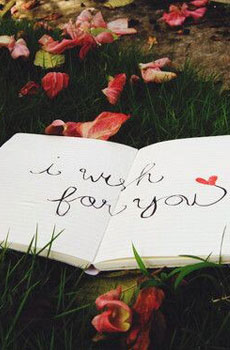 i wish
for you